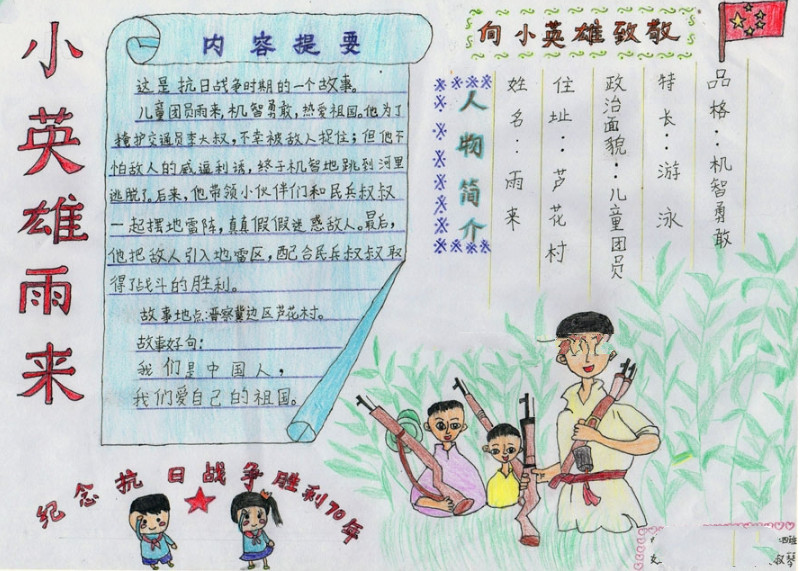 小英雄雨来
内容提要
这是抗日战争时期的一个故事。
儿童团员雨来,机智勇敢,热爱祖国。他为了
掩护交通员李大叔,不幸被敌人捉住;但他不
怕敌人的威逼利诱,终于机智地跳到河里
逃脱了。后来,他带领小伙伴们和民兵叔叔
一起摆地雷阵,真真假假迷惑敌人。最后,
他把敌人引入地雷区,配合民兵叔叔取
得了战斗的胜利。
故事地点:晋察冀边区芦花村。
故事好句:
我们是中国人,
我们爱自己的祖国。
向小英雄致敬
人物简介
姓名:雨来
住址:芦花村
政治面貌:儿童团员
特长:游泳
品格:机智勇敢
纪念抗日战争胜利70年
四班